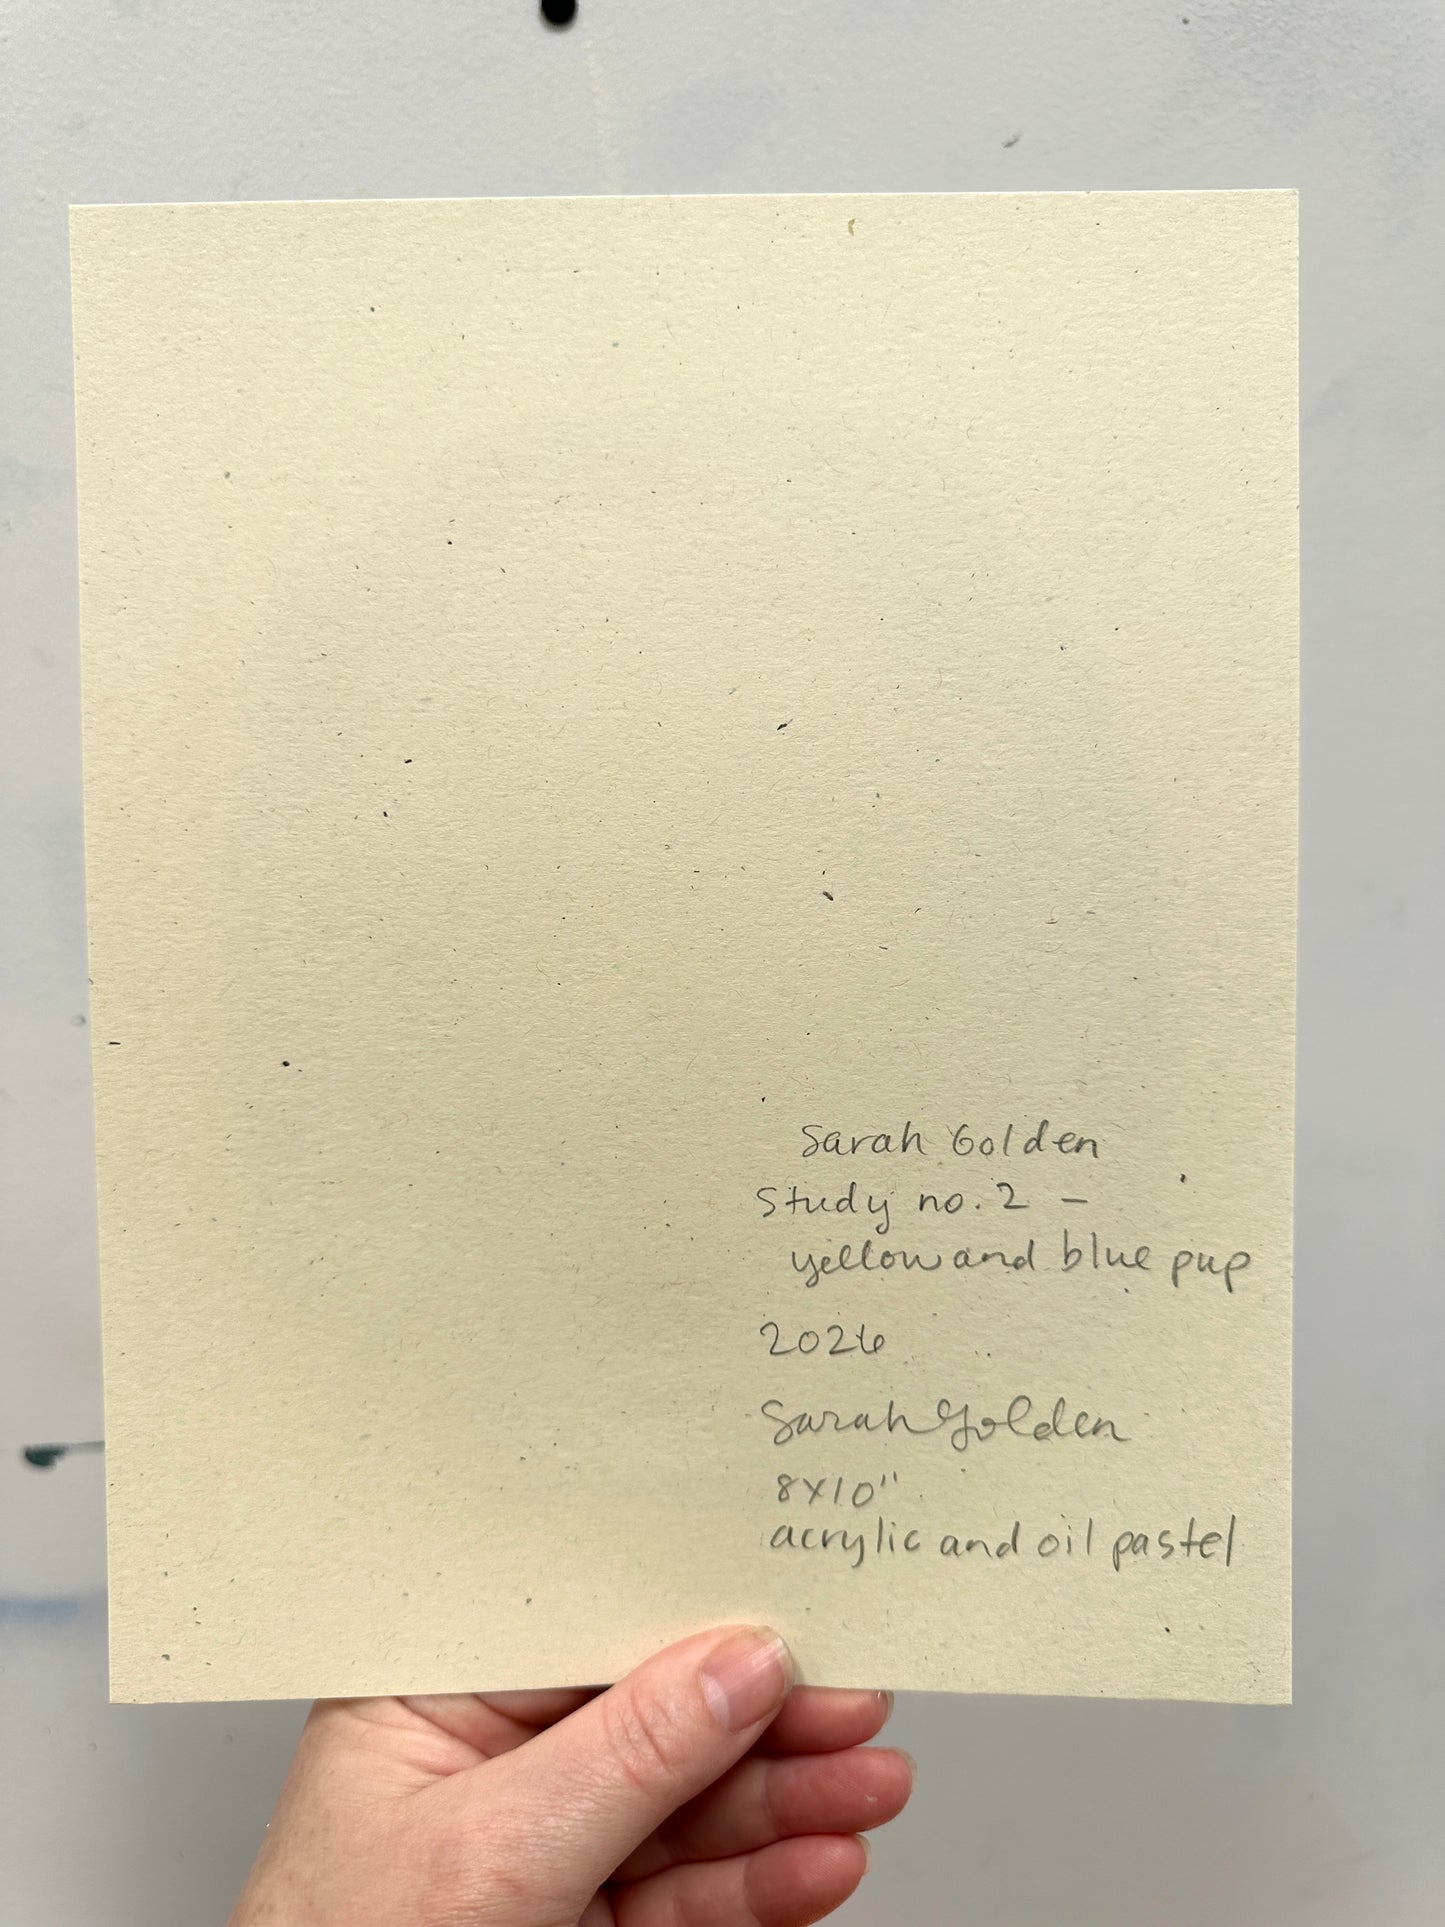 Sarah Golden
Study no. 2 -
yellow and blue pup
2026
Sarah Golden
8x10"
acrylic and oil pastel